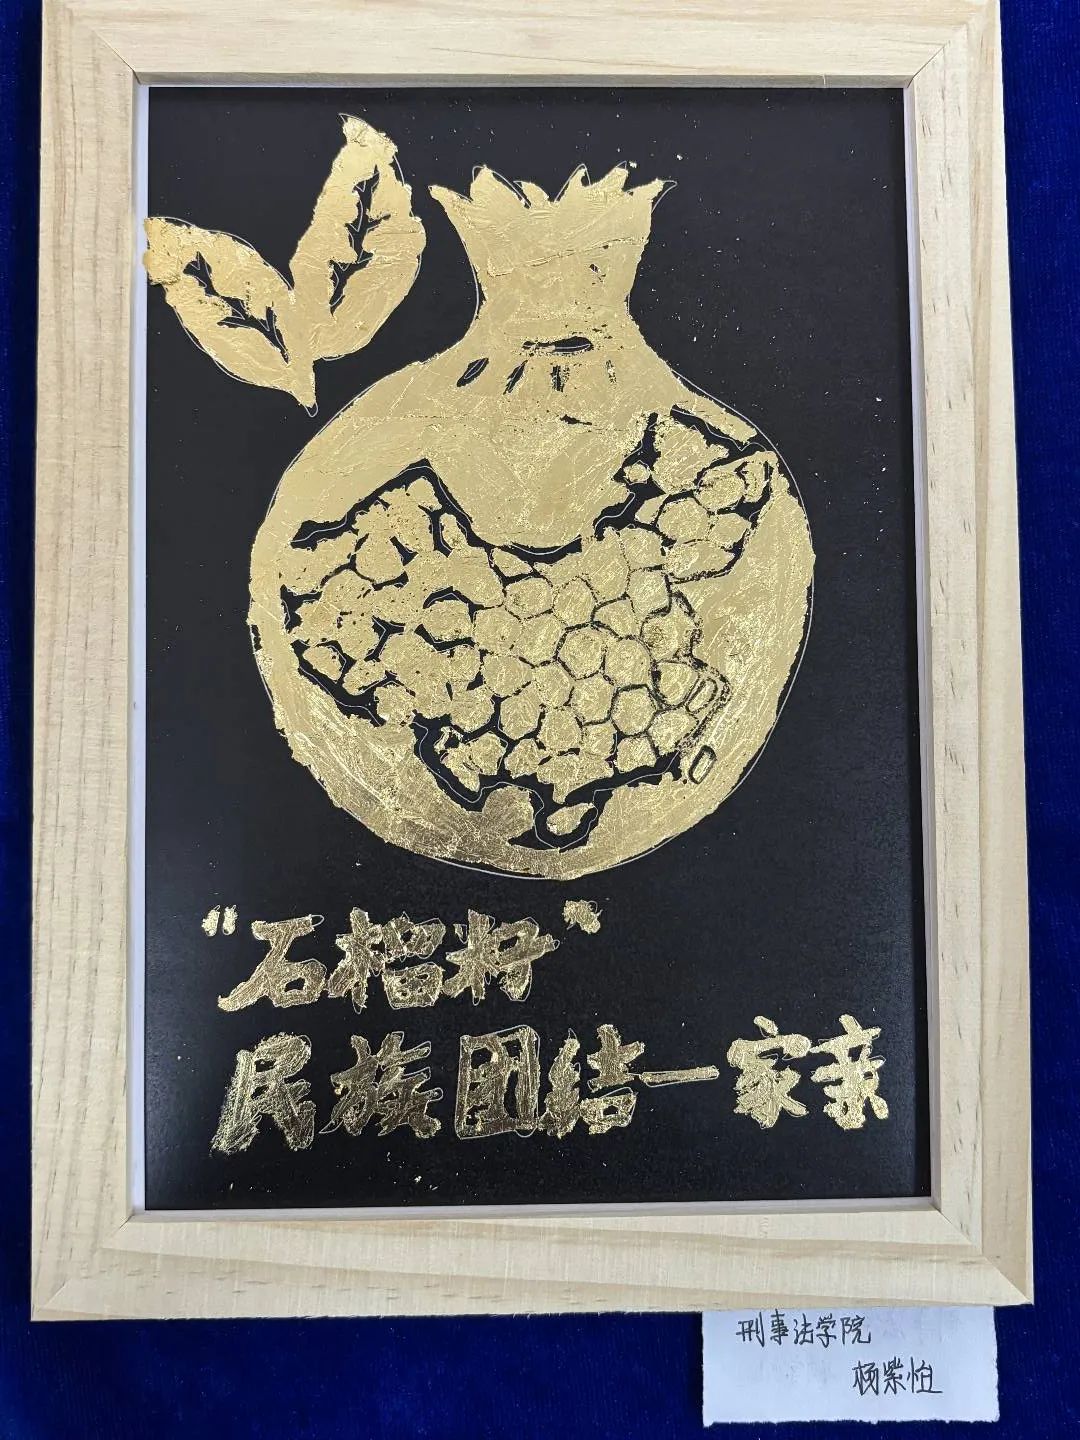 “石榴籽”
民族团结一家亲
刑事法学院
杨紫怡